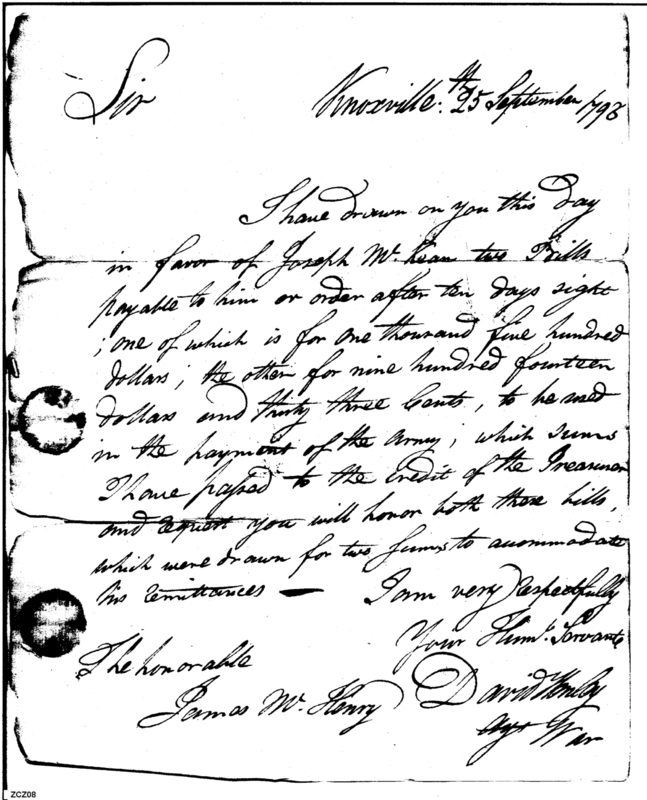 Sir
Knoxville. 25th September 1798
I have drawn on you this day
in favor of Joseph Mc Kean two Bills
payable to him or order after ten days sight
; one of which is for one thousand five hundred
dollars; the other for nine hundred fourteen
dollars and thirty three Cents, to be used
in the payment of the Army; which sums
I have passed to the credit of the Treasurer
and request you will honor both these bills,
which were drawn for two sums to accommodate
his remittances — I am very respectfully
Your Humb. Servant
The honorable
James Mc Henry
David Henley
Agt War
ZCZ08